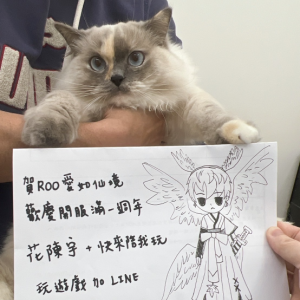 賀ROO愛如仙境
歡慶開服滿一週年
花陳宇+快來陪我玩
玩遊戲加LINE